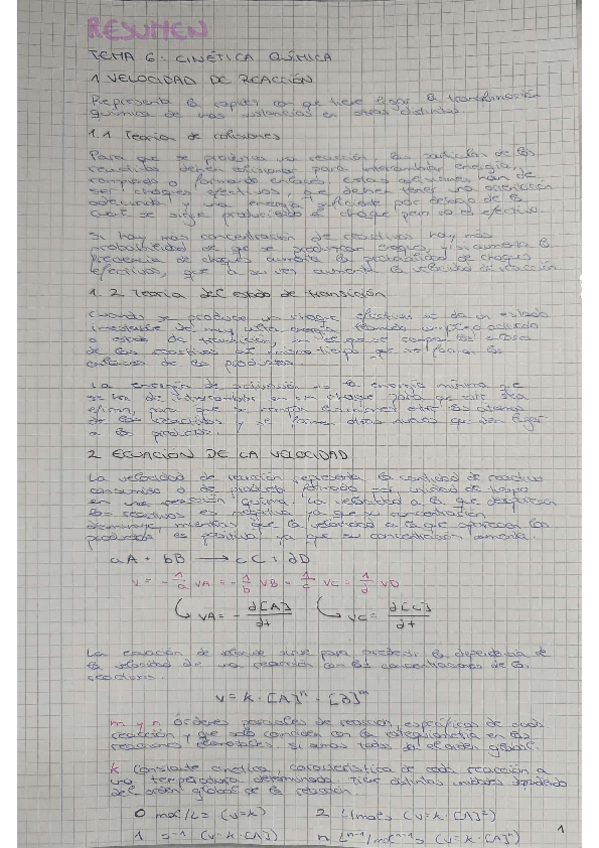 RESUMEN
TEMA 6: CINÉTICA QUÍMICA
1 VELOCIDAD DE REACCIÓN
Representa la rapidez con que tiene lugar la transformación
química de unas sustancias en otras distintas
1.1 Teoría de colisiones
Para que se produzca una reacción, las partículas de los
reactivos deben colisionar para intercambiar energía,
rompiendo o formando enlaces, estas colisiones han de
ser choques efectivos, que deben tener una orientación
adecuada y una energía suficiente por debajo de la
cual se sigue produciendo el choque pero no es efectivo.
Si hay más concentración de reactivos hay más
probabilidad de que se produzcan choques, y si aumenta la
frecuencia de choques aumenta la probabilidad de choques
efectivos, que a su vez aumenta la velocidad de reacción
1.2 Teoría del estado de transición
Cuando se produce un choque efectivo se da un estado
inestable de muy alta energía llamado complejo activado
o estado de transición, en el que se rompen los enlaces
de los reactivos al mismo tiempo que se forman los
enlaces de los productos.
La energía de activación es la energía mínima que
se ha de intercambiar en un choque para que este sea
eficaz, para que se rompan las uniones entre los átomos
de los reactivos y se formen otras nuevas que den lugar
a los productos.
2 ECUACIÓN DE LA VELOCIDAD
La velocidad de reacción representa la cantidad de reactivo
consumido o de producto formado por unidad de tiempo
en una reacción química. La velocidad a la que desaparecen
los reactivos es negativa ya que su concentración
disminuye, mientras que la velocidad a la que aparecen los
productos es positiva ya que su concentración aumenta
aA + bB → cC + dD
v = - 1/a vA = - 1/b vB = 1/c vC = 1/d vD
vA = - d[A]/dt vC = d[C]/dt
La ecuación de velocidad sirve para predecir la dependencia de
la velocidad de una reacción con las concentraciones de los
reactivos.
v = k · [A]ⁿ · [B]ᵐ
m y n órdenes parciales de reacción, específicas de cada
reacción y que solo coinciden con la estequiometría en las
reacciones elementales. Si sumas todos da el orden global.
k constante cinética, característica de cada reacción a
una temperatura determinada. Tiene distintas unidades dependiendo
del orden global de la reacción.
0 mol/Ls (v=k) 2 L/mol s (v=k·[A]²)
1 s⁻¹ (v=k·[A]) n Lⁿ⁻¹/molⁿ⁻¹s (v=k·[A]ⁿ)
1